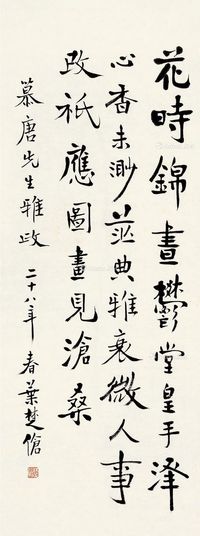 花時錦晝鬱堂皇手澤
心香未渺茫典雅衰微人事
改祇應圖畫見滄桑
慕唐先生雅政 二十八年春葉楚傖